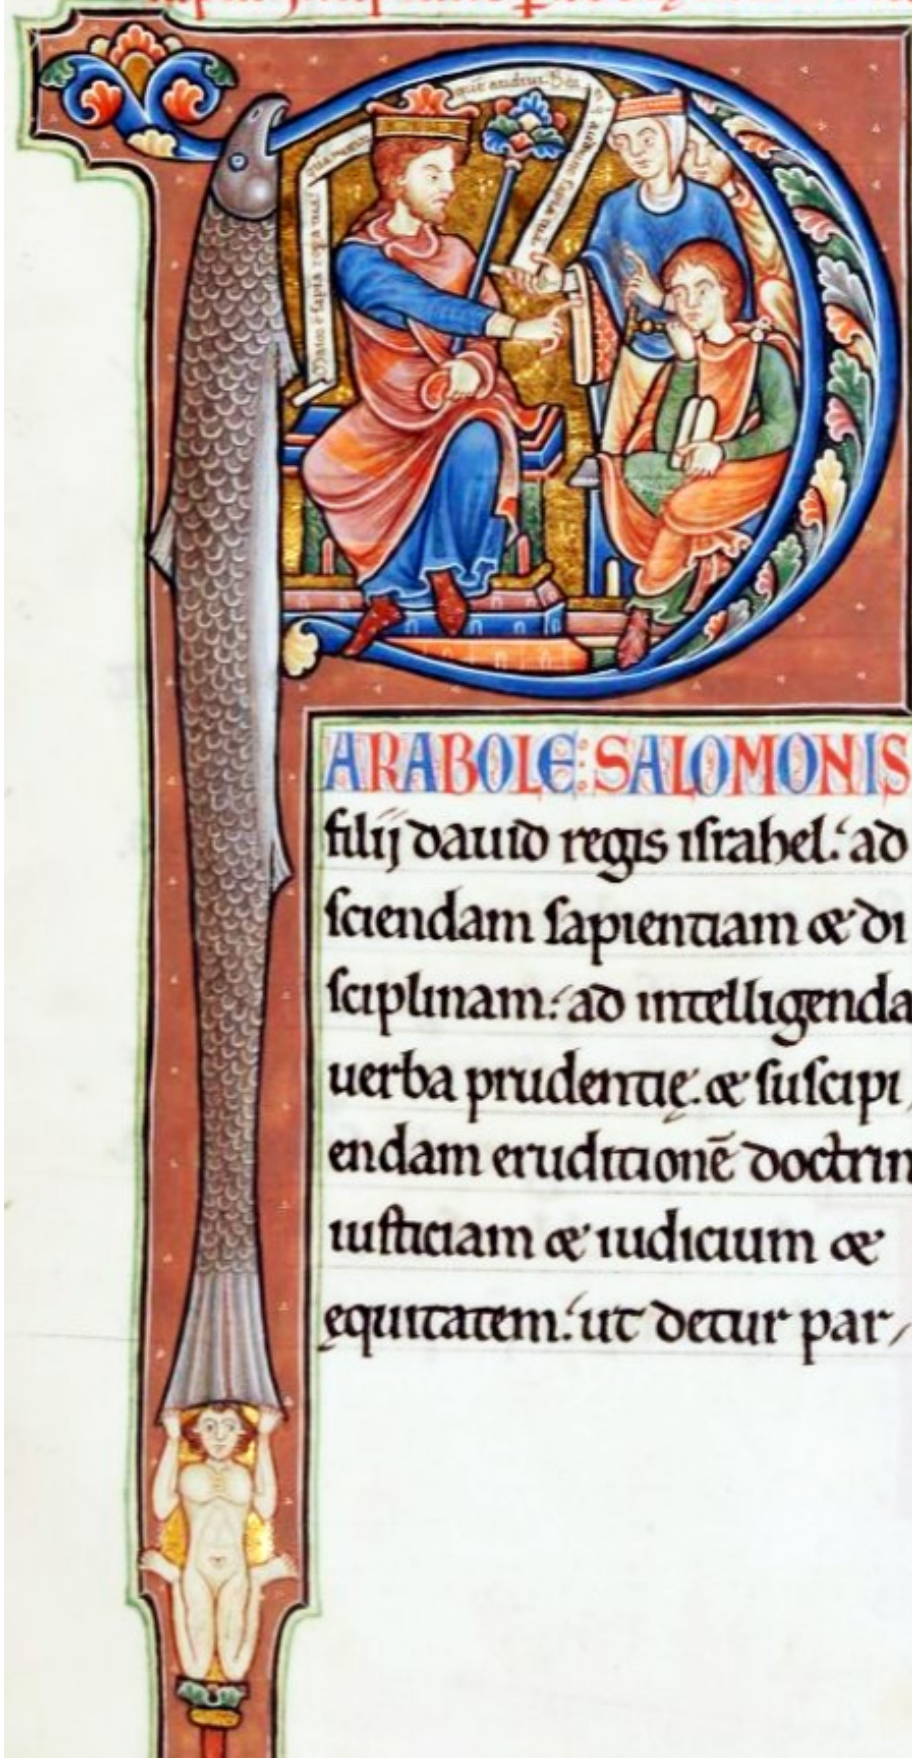 ARABOLE: SALOMONIS
filij dauid regis israhel: ad
sciendam sapientiam & di
sciplinam: ad intelligenda
uerba prudentię. & suscipi
endam eruditionē doctrin
iusticiam & iudicium &
ęquitatem: ut detur par